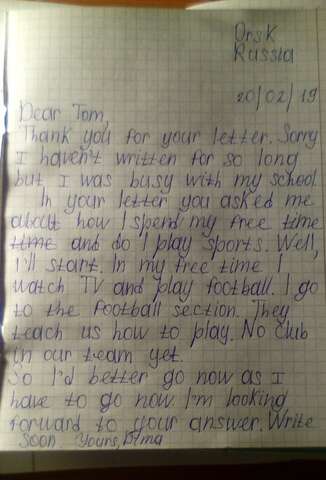 Orsk
Russia
20/02/19
Dear Tom,
Thank you for your letter. Sorry
I haven't written for so long
but I was busy with my school.
In your letter you asked me
about how I spend my free time
time and do I play sports. Well,
I'll start. In my free time I
watch TV and play football. I go
to the football section. They
teach us how to play. No club
in our team yet.
So I'd better go now as I
have to go now I'm looking
forward to your answer. Write
soon Yours, Dima